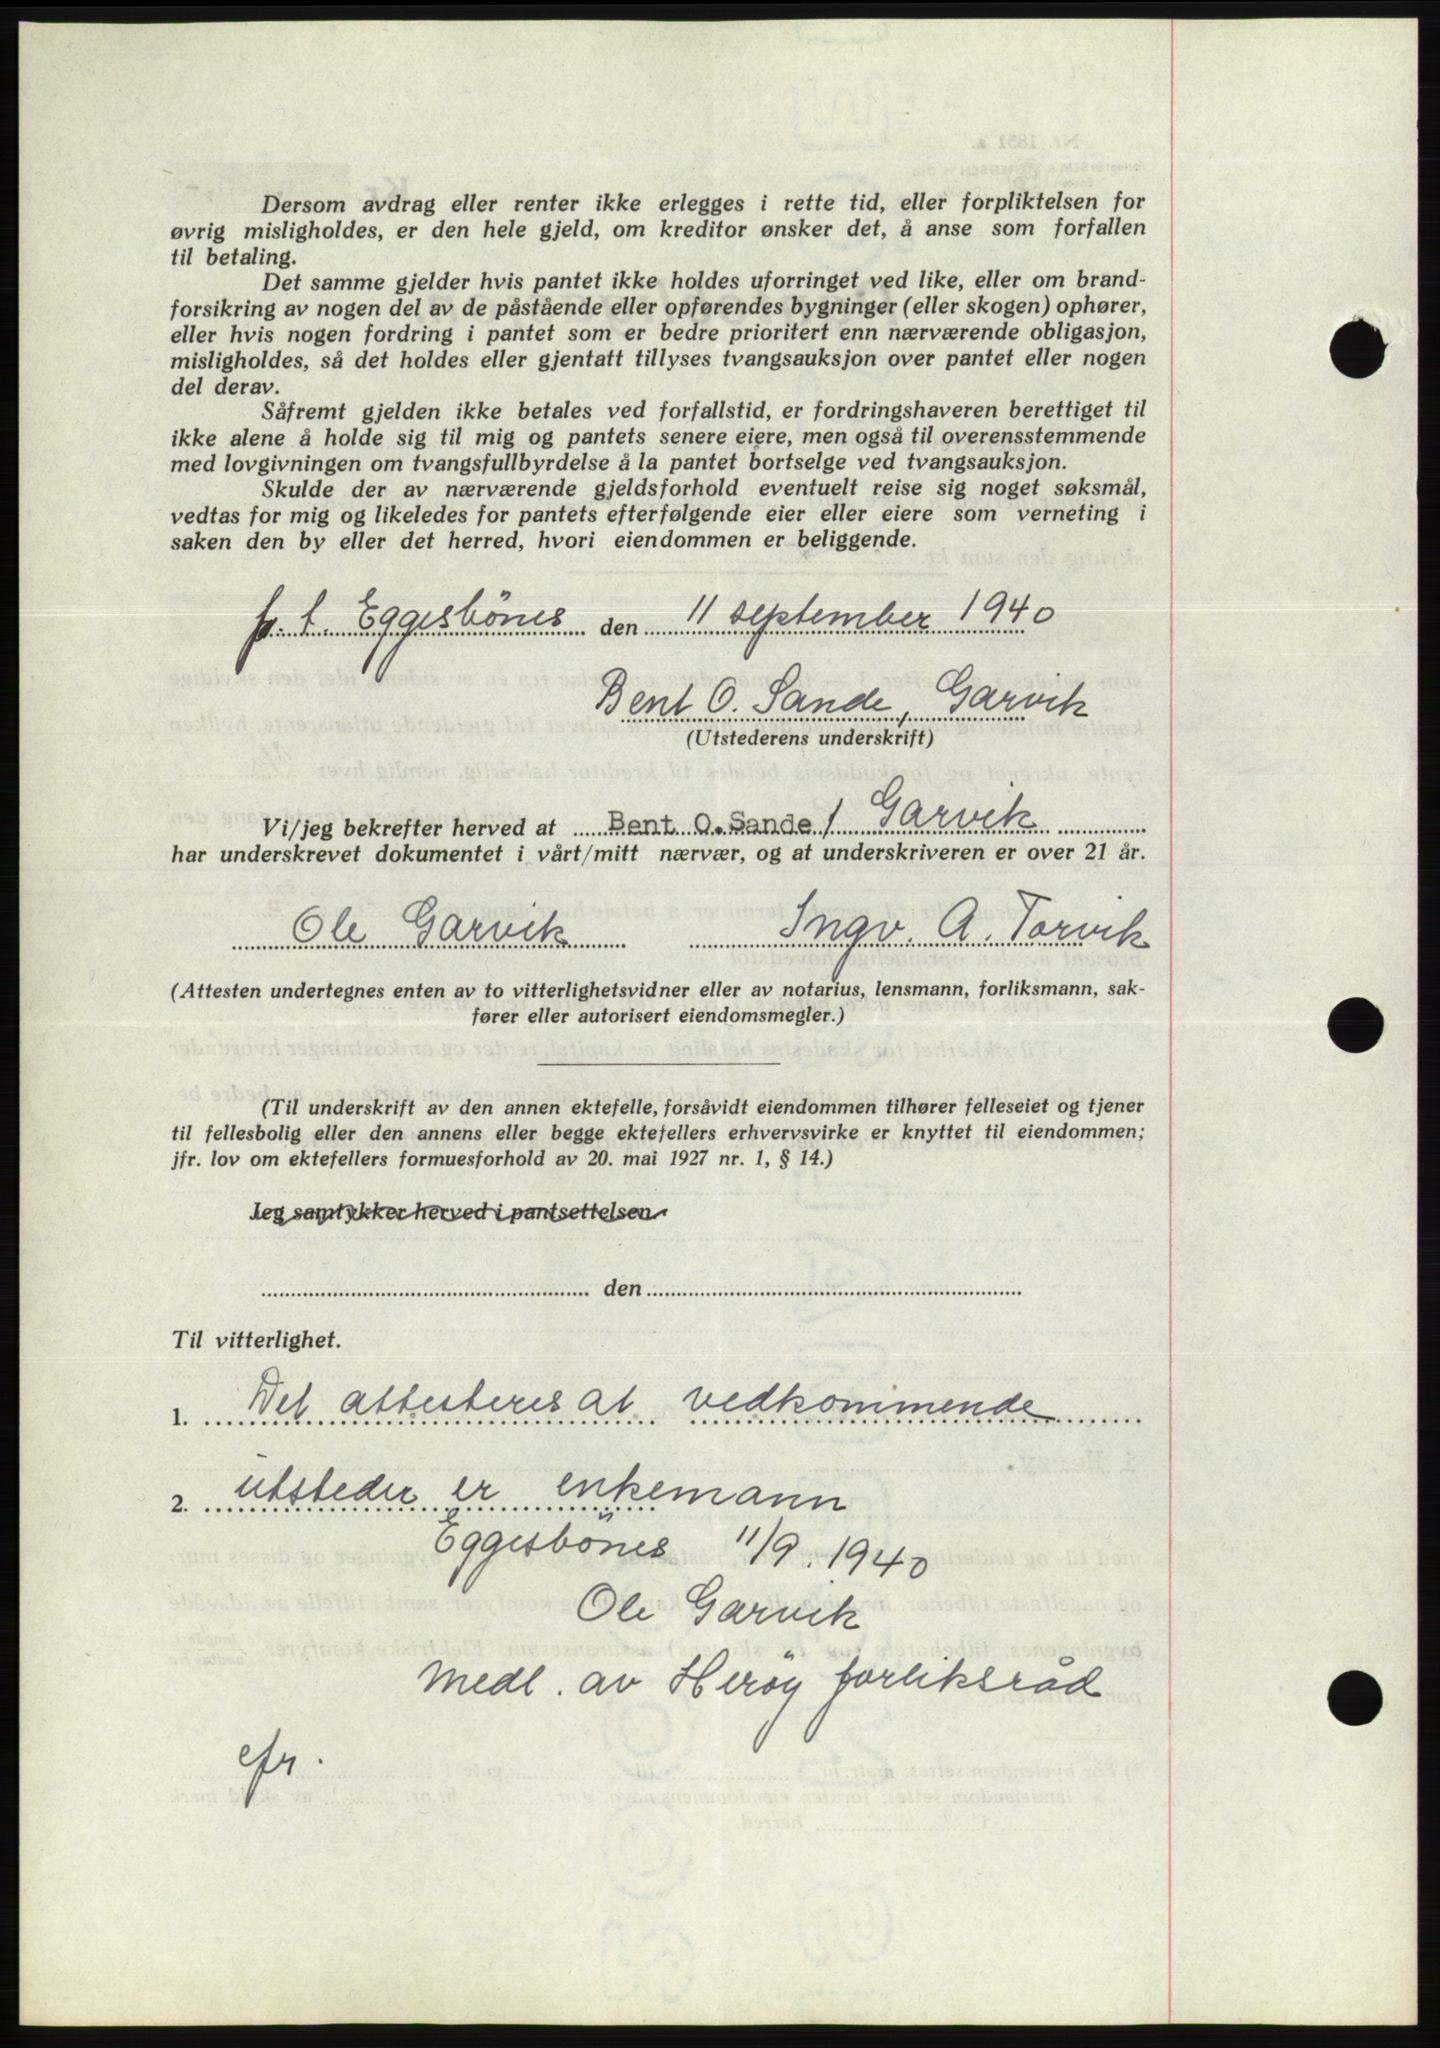 Dersom avdrag eller renter ikke erlegges i rette tid, eller forpliktelsen for
øvrig misligholdes, er den hele gjeld, om kreditor ønsker det, å anse som forfallen
til betaling.
Det samme gjelder hvis pantet ikke holdes uforringet ved like, eller om brand-
forsikring av nogen del av de påstående eller opførendes bygninger (eller skogen) ophører,
eller hvis nogen fordring i pantet som er bedre prioritert enn nærværende obligasjon,
misligholdes, så det holdes eller gjentatt tillyses tvangsauksjon over pantet eller nogen
del derav.
Såfremt gjelden ikke betales ved forfallstid, er fordringshaveren berettiget til
ikke alene å holde sig til mig og pantets senere eiere, men også til overensstemmende
med lovgivningen om tvangsfullbyrdelse å la pantet bortselge ved tvangsauksjon.
Skulde der av nærværende gjeldsforhold eventuelt reise sig noget søksmål,
vedtas for mig og likeledes for pantets efterfølgende eier eller eiere som verneting i
saken den by eller det herred, hvori eiendommen er beliggende.
p. t. Eggesbönes den 11 september 1940
Bent O. Sande, Garvik
(Utstederens underskrift)
Vi/jeg bekrefter herved at Bent O. Sande / Garvik
har underskrevet dokumentet i vårt/mitt nærvær, og at underskriveren er over 21 år.
Ole Garvik Ingv. A. Torvik
(Attesten undertegnes enten av to vitterlighetsvidner eller av notarius, lensmann, forliksmann, sak-
fører eller autorisert eiendomsmegler.)
(Til underskrift av den annen ektefelle, forsåvidt eiendommen tilhører felleseiet og tjener
til fellesbolig eller den annens eller begge ektefellers erhvervsvirke er knyttet til eiendommen;
jfr. lov om ektefellers formuesforhold av 20. mai 1927 nr. 1, § 14.)
Jeg samtykker herved i pantsettelsen.
den
Til vitterlighet.
1. Det attesteres at vedkommende
2. utsteder er enkemann
Eggesbönes 11/9. 1940
Ole Garvik
Medl. av Heröy forliksråd